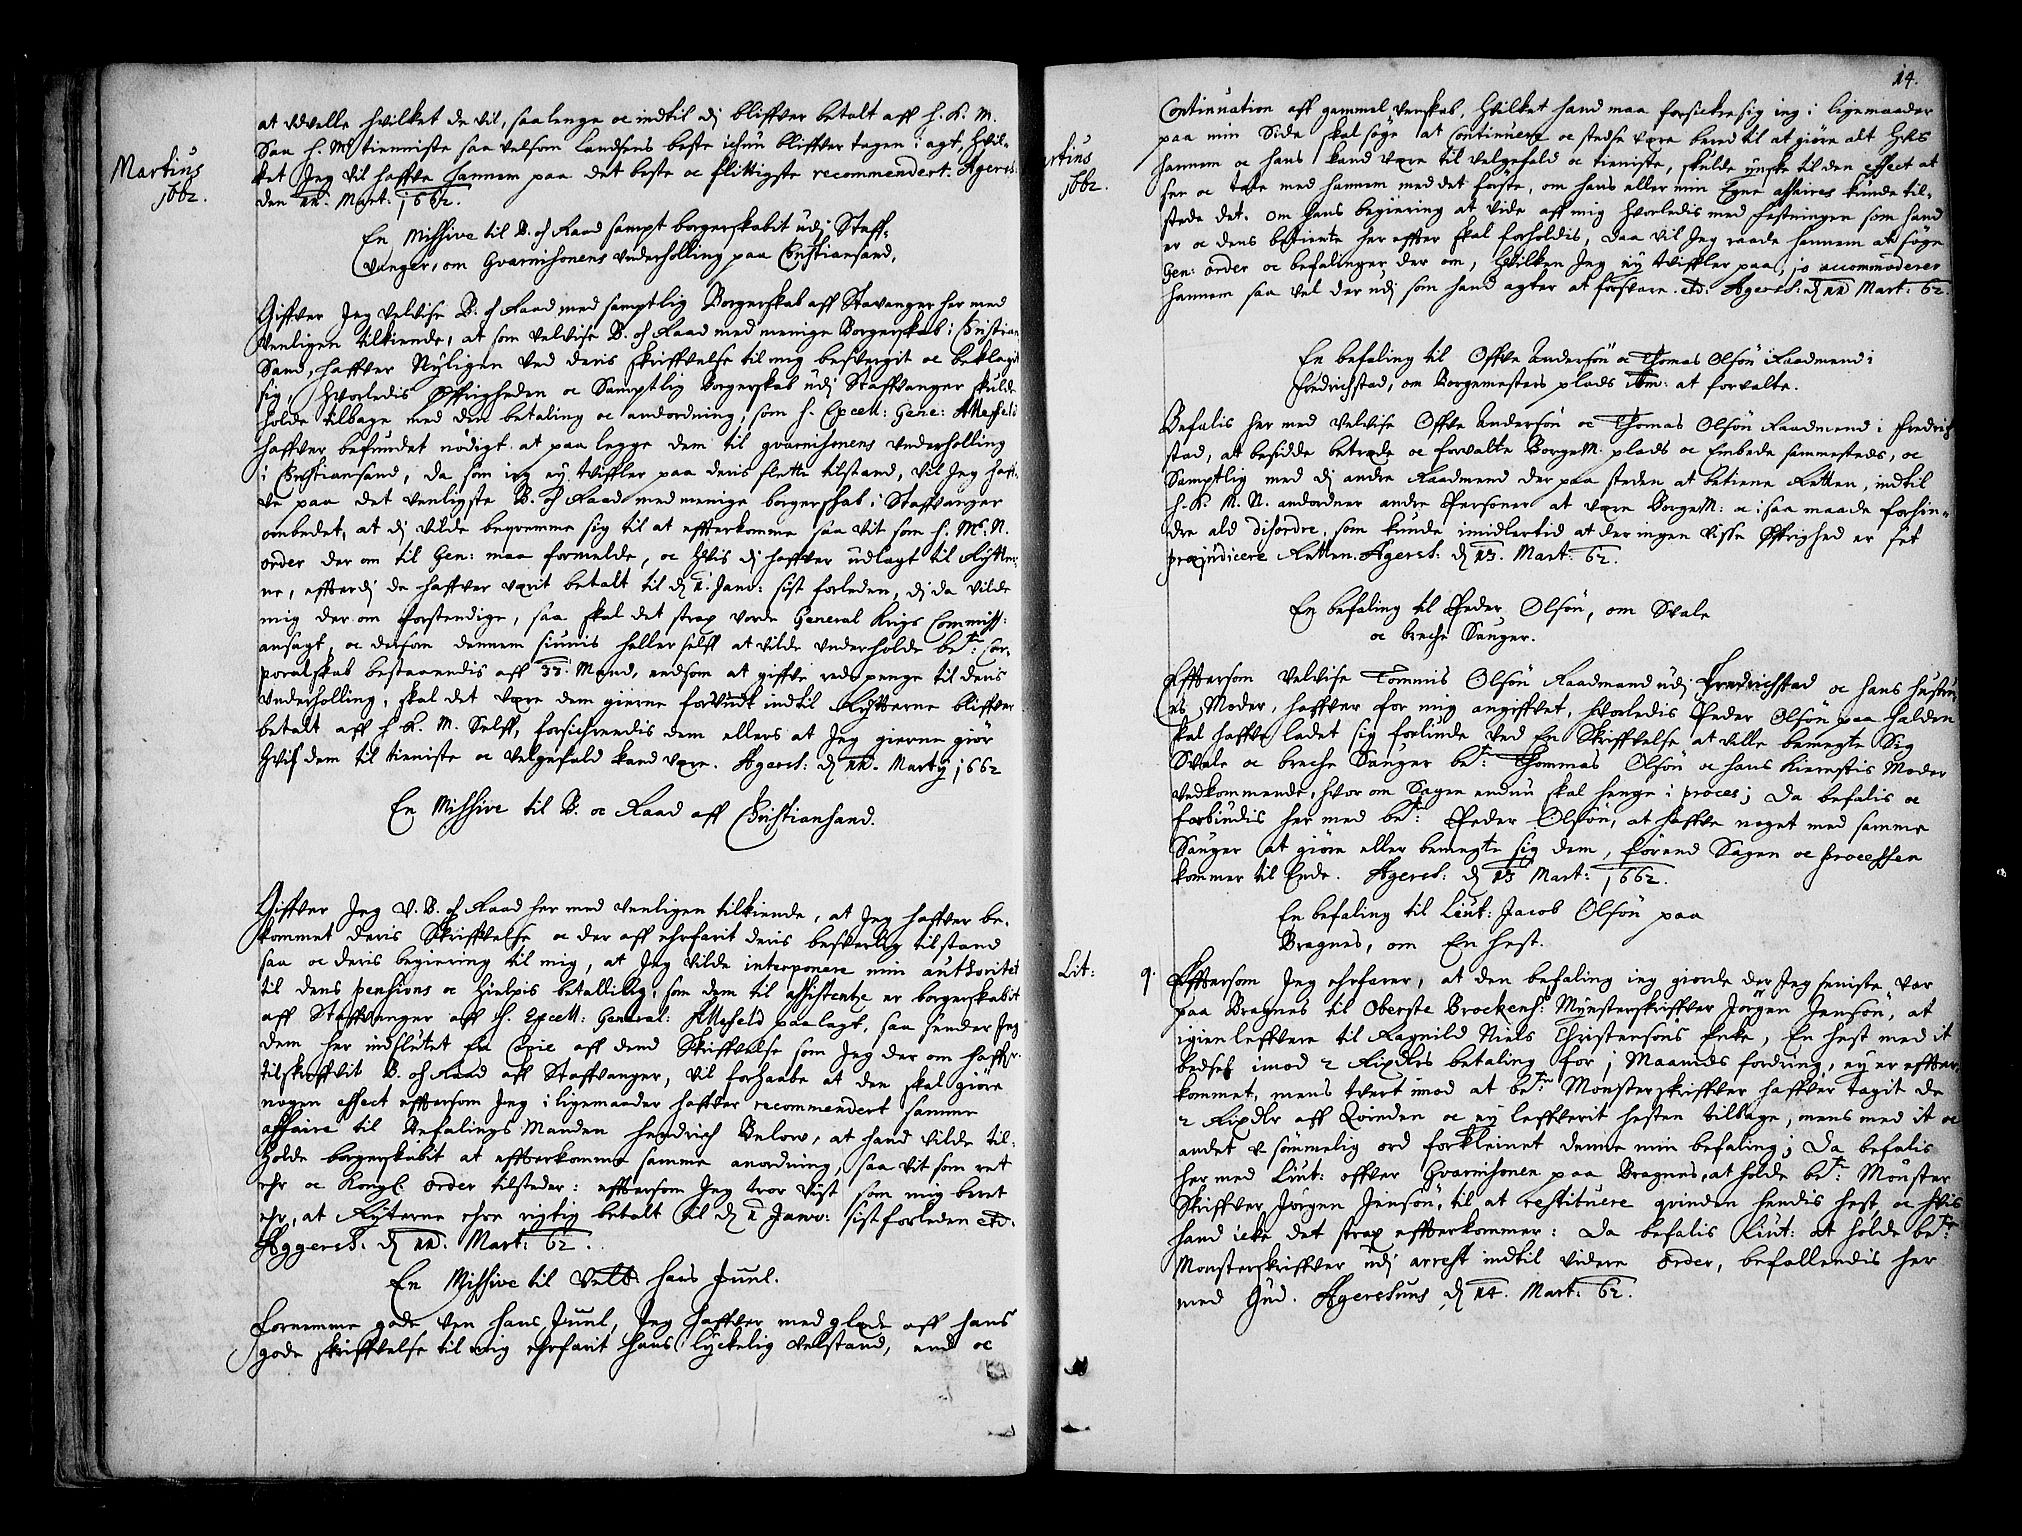 Martius
1662.
at udvelle hvilket de vil, saalenge oc indtil dj bliffver betalt aff h. K. M.
Saa h. Mt tienniste saa velsom Landsens beste ichun bliffver tagen i agt, hvil-
ket Jeg vil haffve hannem paa det beste oc flittigste recommendert. Agers:
den 11. Mart: 1662.
En Missive til B. oc Raad sampt borgerskabit udj Staff-
vanger, om Gvarnisonens underholling paa Christiansand.
Giffver Jeg velvise B. oc Raad med samptlig Borgerskab aff Stavanger her med
venligen tilkiende, at som velvise B. oc Raad med menige Borgerskab i Christian
Sand, haffver Nyligen ved deris skriffvelse til mig besvergit oc beklagit
sig, hvorledis Øffrigheden oc Samptlig Borgerskab udj Staffvanger skulde
holde tilbage med den betaling oc anordning, som h. Excell: Gene:
haffver befundet nødigt at paa legge dem til gvarnisonens underholling
i Christiansand, da som jeg ey tviffler paa deris slette tilstand, vil Jeg haff-
ve paa det venligste B. oc Raad med menige borgerskab i Staffvanger
ombedet, at dj vilde beqvemme sig til at effterkomme saa vit som h. Ms. N.
order der om til Gen: maa formelde, oc hvis dj haffver udlagt til Rytter-
ne, efftterdj de haffver verit betalt til d. 1. Janv: sist forleden, dj da vilde
mig der om forstendige, saa skal det strax vorde General Krigs Commiss:
ansagt, oc dersom dennem siunis heller selff at vilde underholde bete: cor-
poralskab bestaaendis aff 33 Mand, endsom at giffve rede penge til deris
underholling, skal det være dem gierne forundt indtil Rytterne bliffver
betalt aff h. K. M. Selff, forsichrendis dem ellers at Jeg gierne giør
hvis dem til tieniste oc velgefald kand være. Agersh: d. 11. Martij 1662
En Missive til B. oc Raad aff Christiansand.
Giffver Jeg V. B. oc Raad her med venligen tilkiende, at Jeg haffver be-
kommet deris Skriffvelse oc der aff ehrfarit deris besverlig tilstand
saa oc deris begiering til mig, at Jeg vilde interponere min authoritet
til dens pensions oc hielpis betalling, som dem til assistentze er borgerskabit
aff Staffvanger aff H. Excell: General: paalagt, saa sender Jeg
dem her indslutet En Copie aff dend Skriffvelse som Jeg der om haffver
tilskreffvit B. oc Raad aff Staffvanger, vil forhaabe at den skal giøre
nogen effect efftersom Jeg i ligemaader haffver recommendert samme
affaire til Befalings Manden Hendrich Below, at hand vilde til-
holde borgerskabit at effterkomme samme anordning, saa vit som ret
ehr oc Kongl: order tilsteder: efftersom Jeg tror vist som mig beret
ehr, at Rytterne ehre rigtig betalt til d. 1 Janv: sistforleden etc:
Aggersh: d. 11. Mart: 62.
En Missive til Velb. Hans Juul.
Fornemme gode ven Hans Juul, Jeg haffver med glede aff hans
gode skriffvelse til mig ehrfarit hans lyckelig velstand, end oc
14.
rtius
1662.
Continuation aff gammel venskab, hvilket hand maa forsickre sig jeg i ligemaader
paa min Side skal søge at Continuere oc stedse være bered til at giøre alt hvis
hannem oc hans kand være til velgefald oc tieniste, skulde ynske til den effect at
see oc tale med hannem med det første, om hans eller min Egne affaires kunde til-
stede det. om hans begiering at vide aff mig hvorledis med festningen som hand
er oc dens betiente her effter skal forholdis, Daa vil Jeg raade hannem at søge
Gen: order oc befalinger der om, hvilken Jeg ey tviffler paa, jo accommoderer
hannem saa vel der udj som hand agter at forsvare. etc: Agersh: d. 11 Mart: 62.
En befaling til Offve Andersøn oc Thomas Olsøn Raadmend i
Fredrichstad, om Borgemesters plads ibm: at forvalte.
Befalis her med velvise Offve Andersøn oc Thomas Olsøn Raadmend i Fredrich
stad, at besidde betræde oc forvalte BorgeM. plads oc Embede sammesteds, oc
Samptlig med dj andre Raadmend der paa steden at betiene Retten, indtil
h. K. M. N. anordner andre Personer at være BorgeM: oc i saa maade forhin-
dre ald disordre, som kunde imidlertid at der ingen visse Øffrighed er set
præjudicere Retten. Agersh: d. 13. Mart: 62.
En befaling til Peder Olsøn, om Svale
oc breche Sauger.
Efftersom velvise Tommis Olsøn Raadmand udj Fredrichstad oc hans hustru-
es Moder, haffver for mig angiffvet, hvorledis Peder Olsøn paa Halden
skal haffve ladet sig forlinde ved En Skriffvelse at ville bemegte Sig
Svale oc breche Sauger bete: Thommas Olsøn oc hans Kierestis Moder
vedkommende, hvor om Sagen endnu skal henge i proces; Da befalis oc
forbiudis her med bete: Peder Olsøn, at haffve noget med samme
Sauger at giøre eller bemegte sig dem, førend Sagen oc processen
kommer til Ende. Agersh: d. 13 Mart: 1662.
En befaling til Lieut: Jacob Olsøn paa
Bragnes, om En hest.
Lit: 9. Efftersom Jeg ehrfarer, at den befaling jeg giorde der Jeg seniste var
paa Bragnes til Oberste Brockenh: Mynsterskriffver Jørgen Jensøn, at
igien leffvere til Ragnild Niels Christensøns Enke, En hest med it
bedsel imod 2 Rixdlrs betaling for 1 Maanids fordring, ey er effter-
kommet, mens tvert imod at bete: Mønsterskriffver haffver tagit de
2 Rixdlr aff Qvinden oc ey leffverit hesten tilbage, mens med it oc
andet u-sømmelig ord forkleinet denne min befaling; Da befalis
her med Liut: offver Gvarnisonen paa Bragnes, at holde bete: Mønster
Skriffver Jørgen Jensøn, til at restituere qvinden hendis hest, oc hvis
hand icke det strax effterkommer: Da befalis Liut: at holde bete:
Mønsterskriffver udj arrest indtil videre order, befallendis her
med Gud. Agershuus d. 14. Mart: 62.